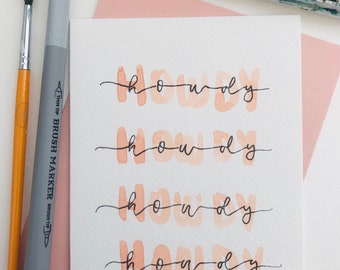 HOWDY
howdy
HOWDY
howdy
HOWDY
howdy
HOWDY
howdy
BRUSH MARKER